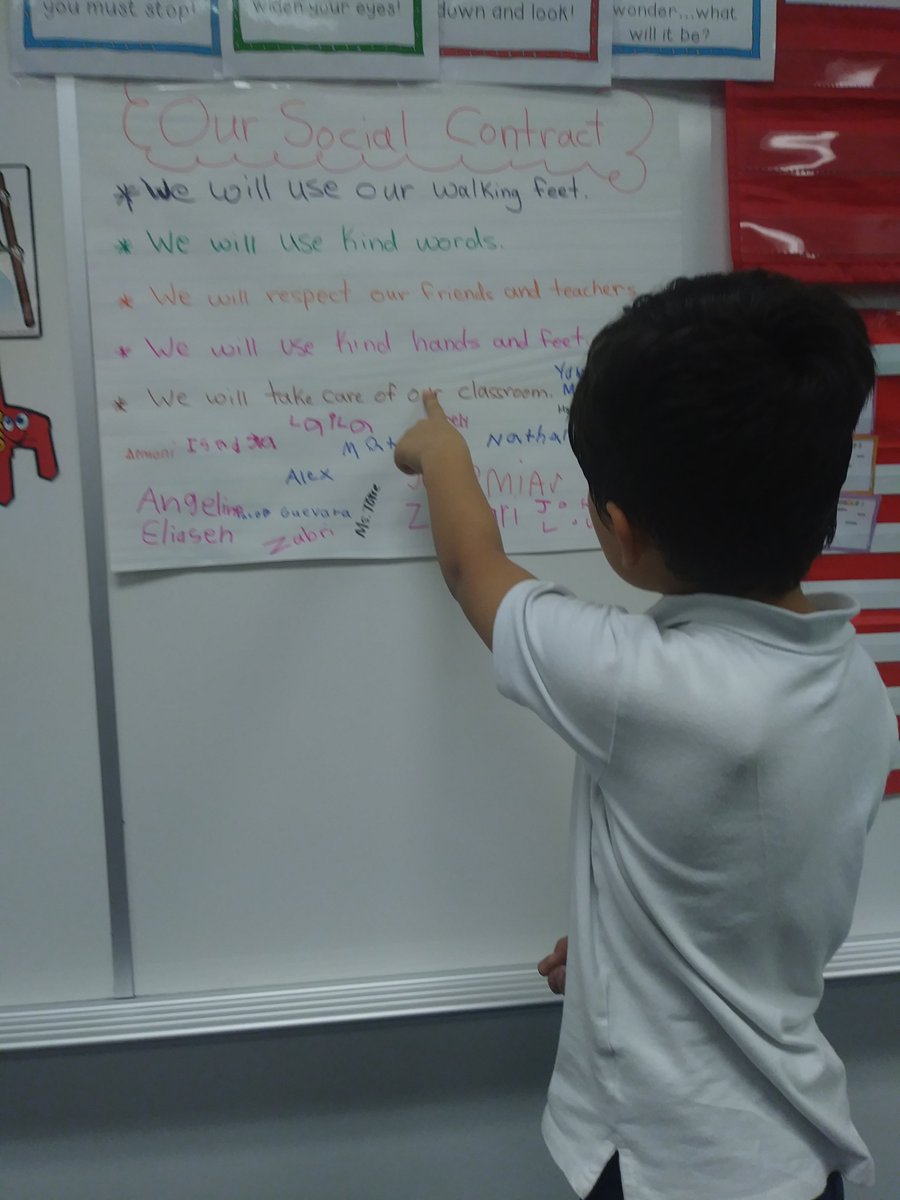 you must stop!
widen your eyes!
down and look!
wonder...what
will it be?
Our Social Contract
* We will use our walking feet.
* We will use kind words.
* We will respect our friends and teachers
* We will use kind hands and feet.
* We will take care of our classroom.
LaiLa
Nathan
Alex
Angelina
Guevara
Ms. Torre
Eliaseh
Zabri